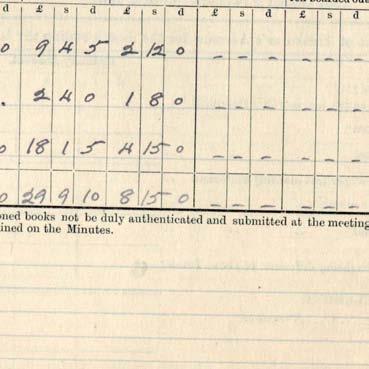 d £ s d £ s d £ s d £ s d
0 9 4 5 2 12 0 – – – – – –
. 2 4 0 1 8 0 – – – – – –
0 18 1 5 4 15 0 – – – – – –
0 29 9 10 8 15 0 – – – – – –
oned books not be duly authenticated and submitted at the meeting
ined on the Minutes.